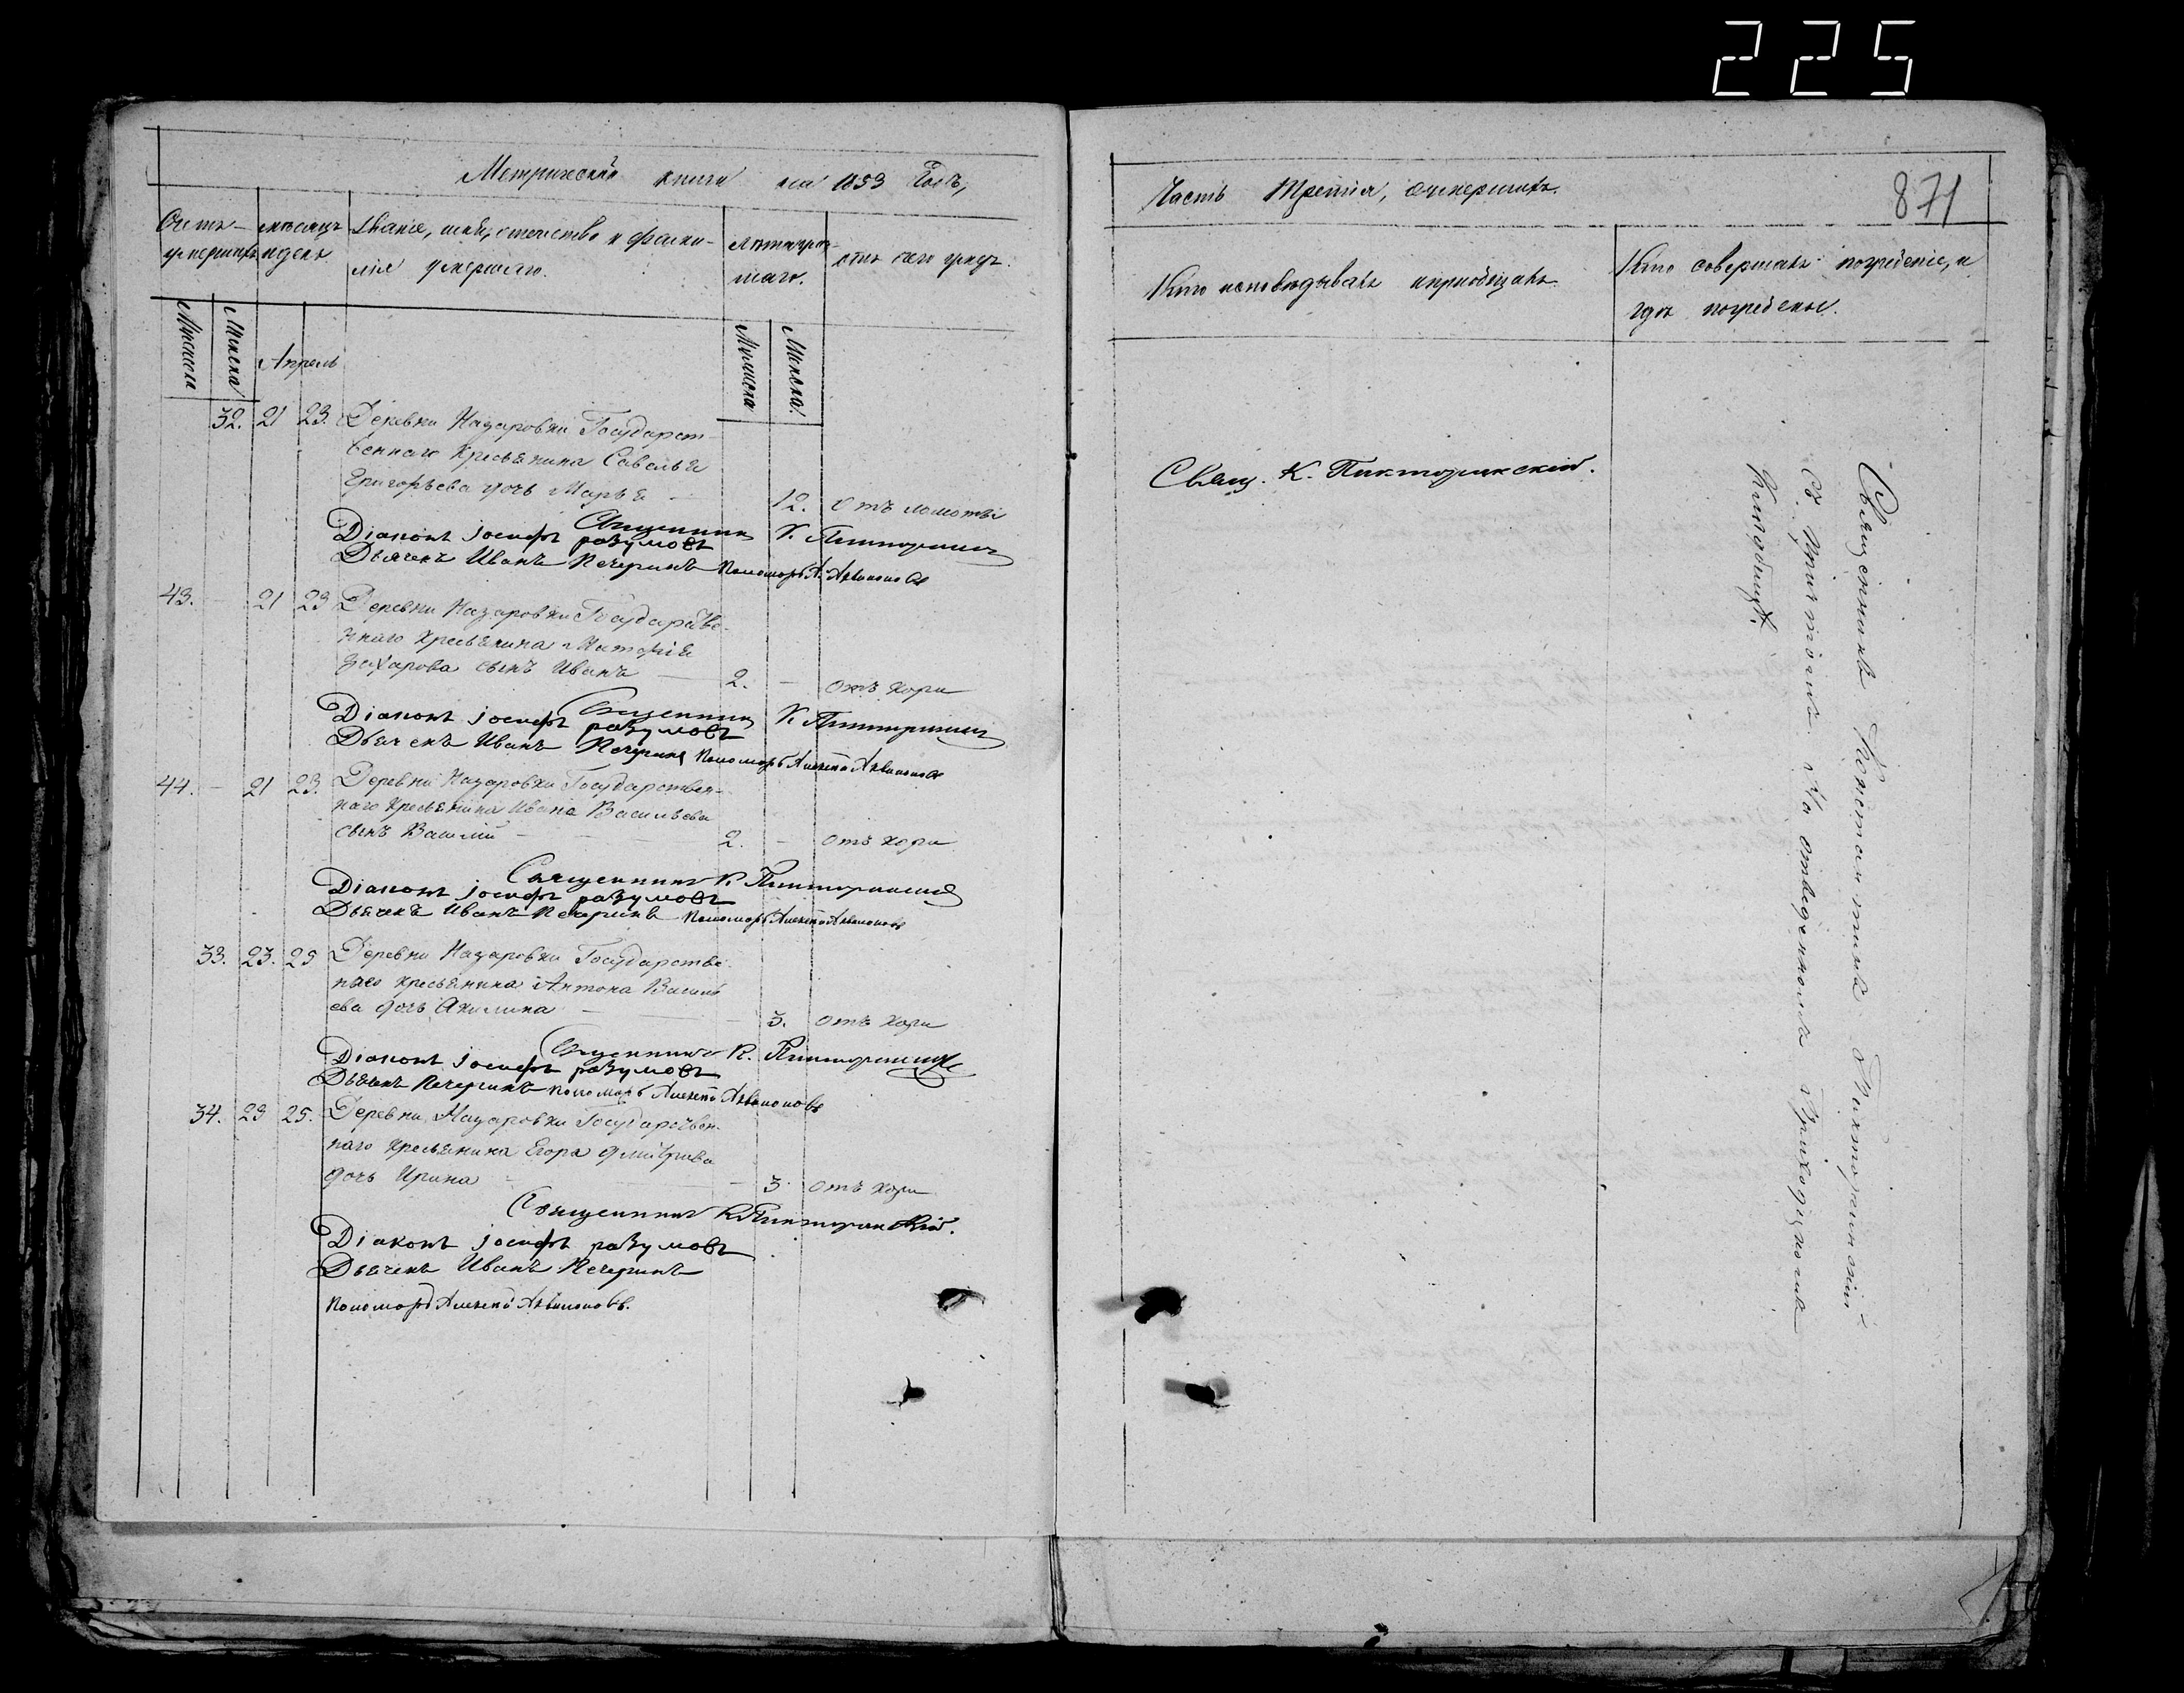 225
Метрической книги на 1853 Годъ,
Счетъ умершихъ
мѣсяцъ и день
Званіе, имя, отечество и фамилія умершаго.
Лѣта умершаго.
отъ чего умеръ.
Мужеска
Женска
Апрель
Мужеска
Женска
32. 21 23. Деревни Назаровки Государст-
веннаго Крестьянина Савелья
Григорьева дочь Марья 12. отъ ломоты
Священникъ К. Пикторинскій
Діаконъ Іосифъ Разумовъ
Дьячекъ Иванъ Печеринъ Пономарь А. Аквилоновъ
43. 21 23 Деревни Назаровки Государстве-
ннаго крестьянина
Захарова сынъ Иванъ 2. отъ кори
Священникъ К Пикторинскій
Діаконъ Іосифъ Разумовъ
Дьячекъ Иванъ Печеринъ Пономарь Алексей Аквилоновъ
44. 21 23. Деревни Назаровки Государствен-
наго крестьянина Ивана Васильева
сынъ Василій 2. отъ кори
Священникъ К. Пикторинскій
Діаконъ Іосифъ Разумовъ
Дьячекъ Иванъ Печеринъ Пономарь Алексей Аквилоновъ
33. 23. 25 Деревни Назаровки Государстве-
ннаго крестьянина Антона Василь
ева дочь Акилина 3. отъ кори
Священникъ К. Пикторинскій
Діаконъ Іосифъ Разумовъ
Дьячекъ Печеринъ Пономарь Алексей Аквилоновъ
34. 23 25. Деревни Назаровки Государствен-
наго крестьянина Егора Дмитріева
дочь Ирина 3. отъ кори
Священникъ К. Пикторинскій.
Діаконъ Іосифъ Разумовъ
Дьячекъ Иванъ Печеринъ
Пономарь Алексей Аквилоновъ.
871
Часть Третія, о умершихъ.
Кто исповѣдывалъ и пріобщалъ
Кто совершалъ погребеніе, и
гдѣ погребены.
Свящ. К. Пикторинскій.
Священникъ Константинъ Пикторинскій
съ Причтомъ На отведенномъ Приходскомъ
Кладбищѣ.